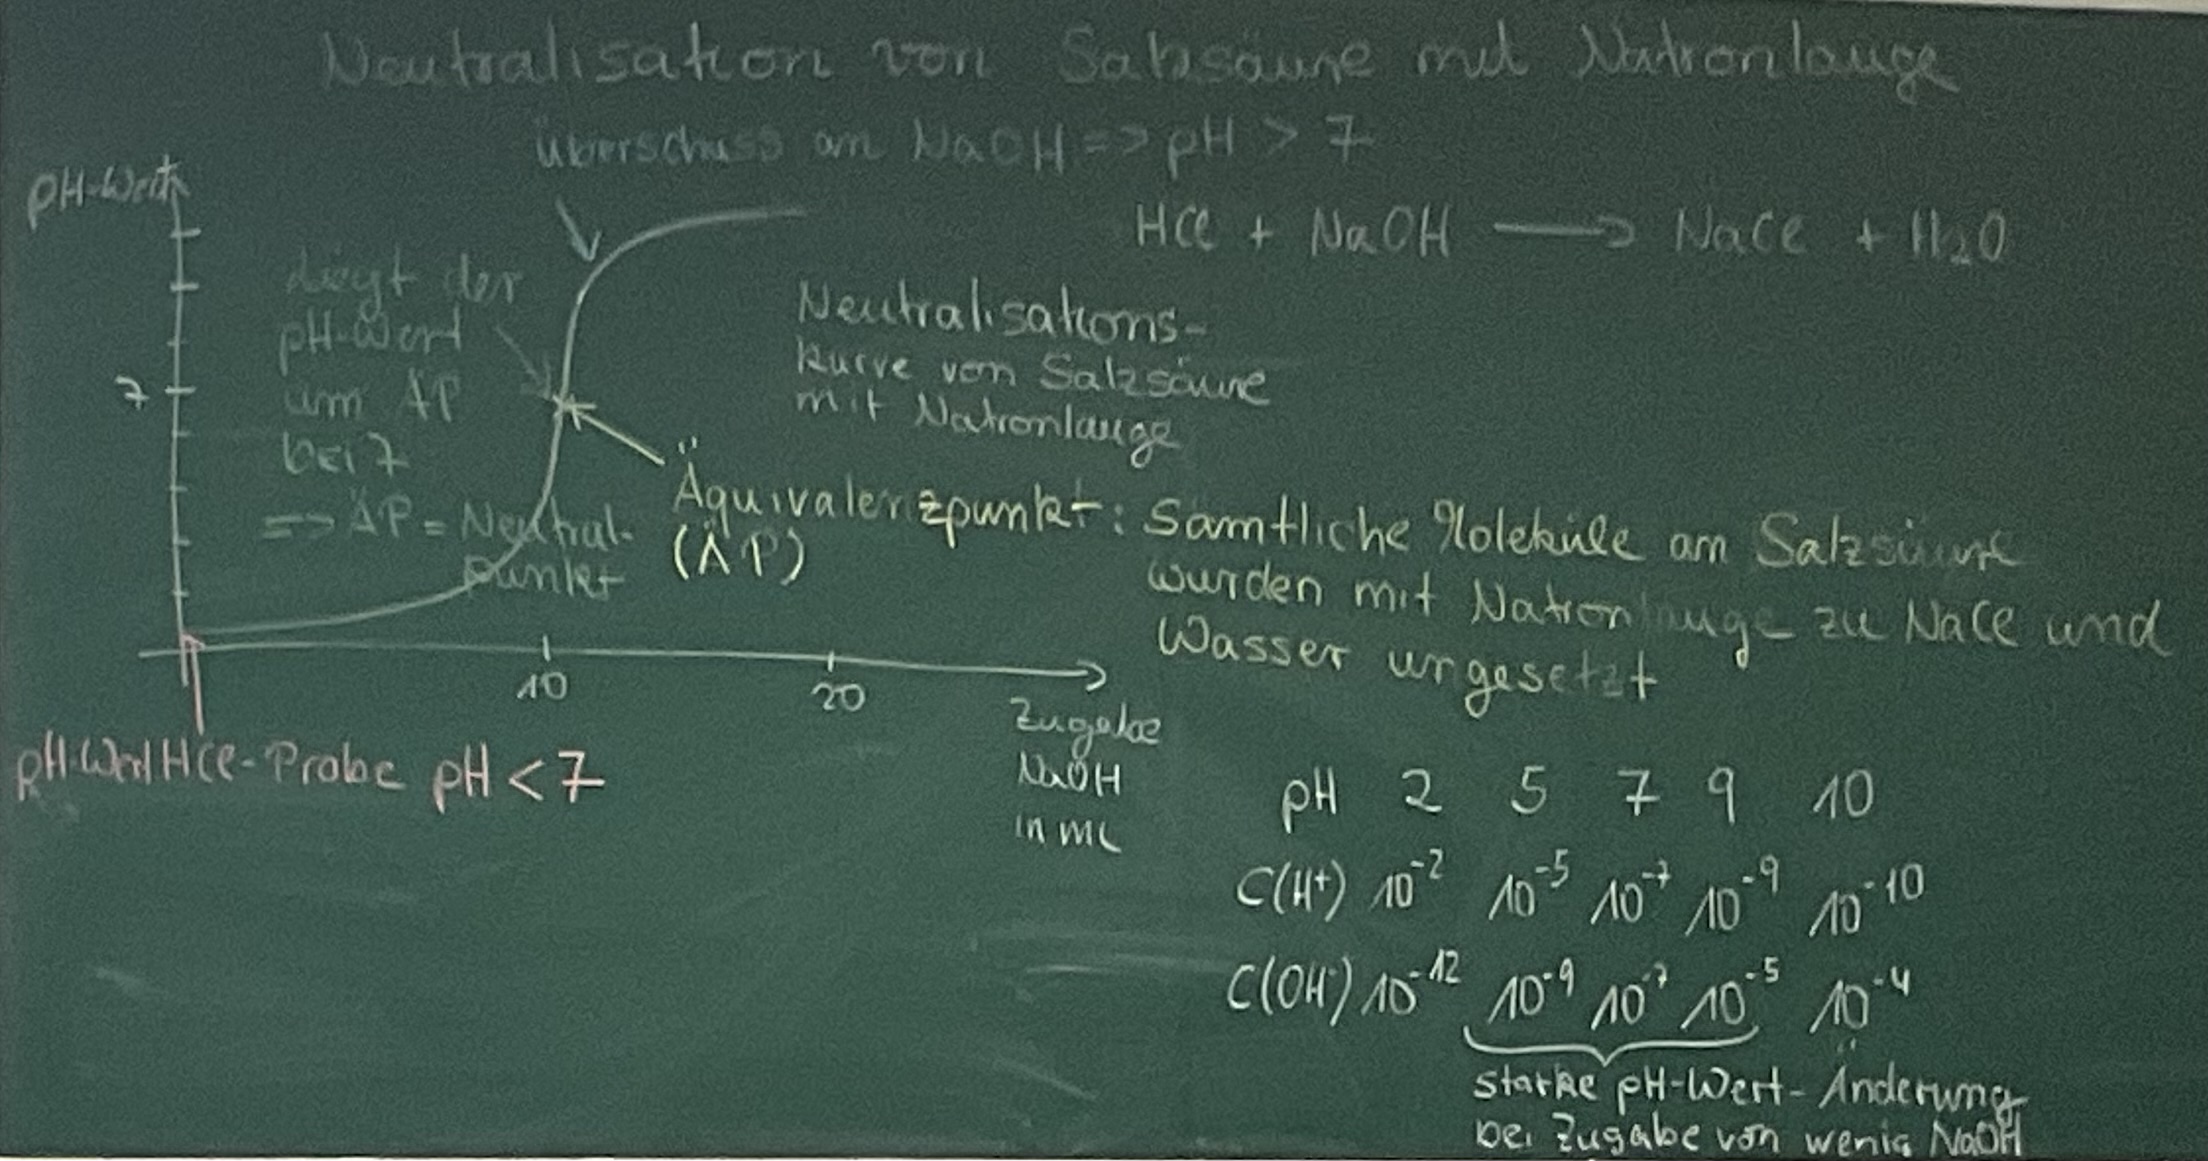 Neutralisation von Salzsäure mit Natronlauge
überschuss an NaOH => pH > 7
pH-Wert
HCl + NaOH → NaCl + H₂O
Liegt der
pH-Wert
am ÄP
bei 7
=> ÄP = Neutral-
punkt
7
Neutralisations-
kurve von Salzsäure
mit Natronlauge
Äquivalenzpunkt: Sämtliche Moleküle an Salzsäure
(ÄP)
wurden mit Natronlauge zu NaCl und
Wasser umgesetzt
10
20
Zugabe
NaOH
in mL
pH-Wert HCl-Probe pH < 7
pH 2 5 7 9 10
C(H⁺) 10⁻² 10⁻⁵ 10⁻⁷ 10⁻⁹ 10⁻¹⁰
C(OH⁻) 10⁻¹² 10⁻⁹ 10⁻⁷ 10⁻⁵ 10⁻⁴
starke pH-Wert-Änderung
bei Zugabe von wenig NaOH